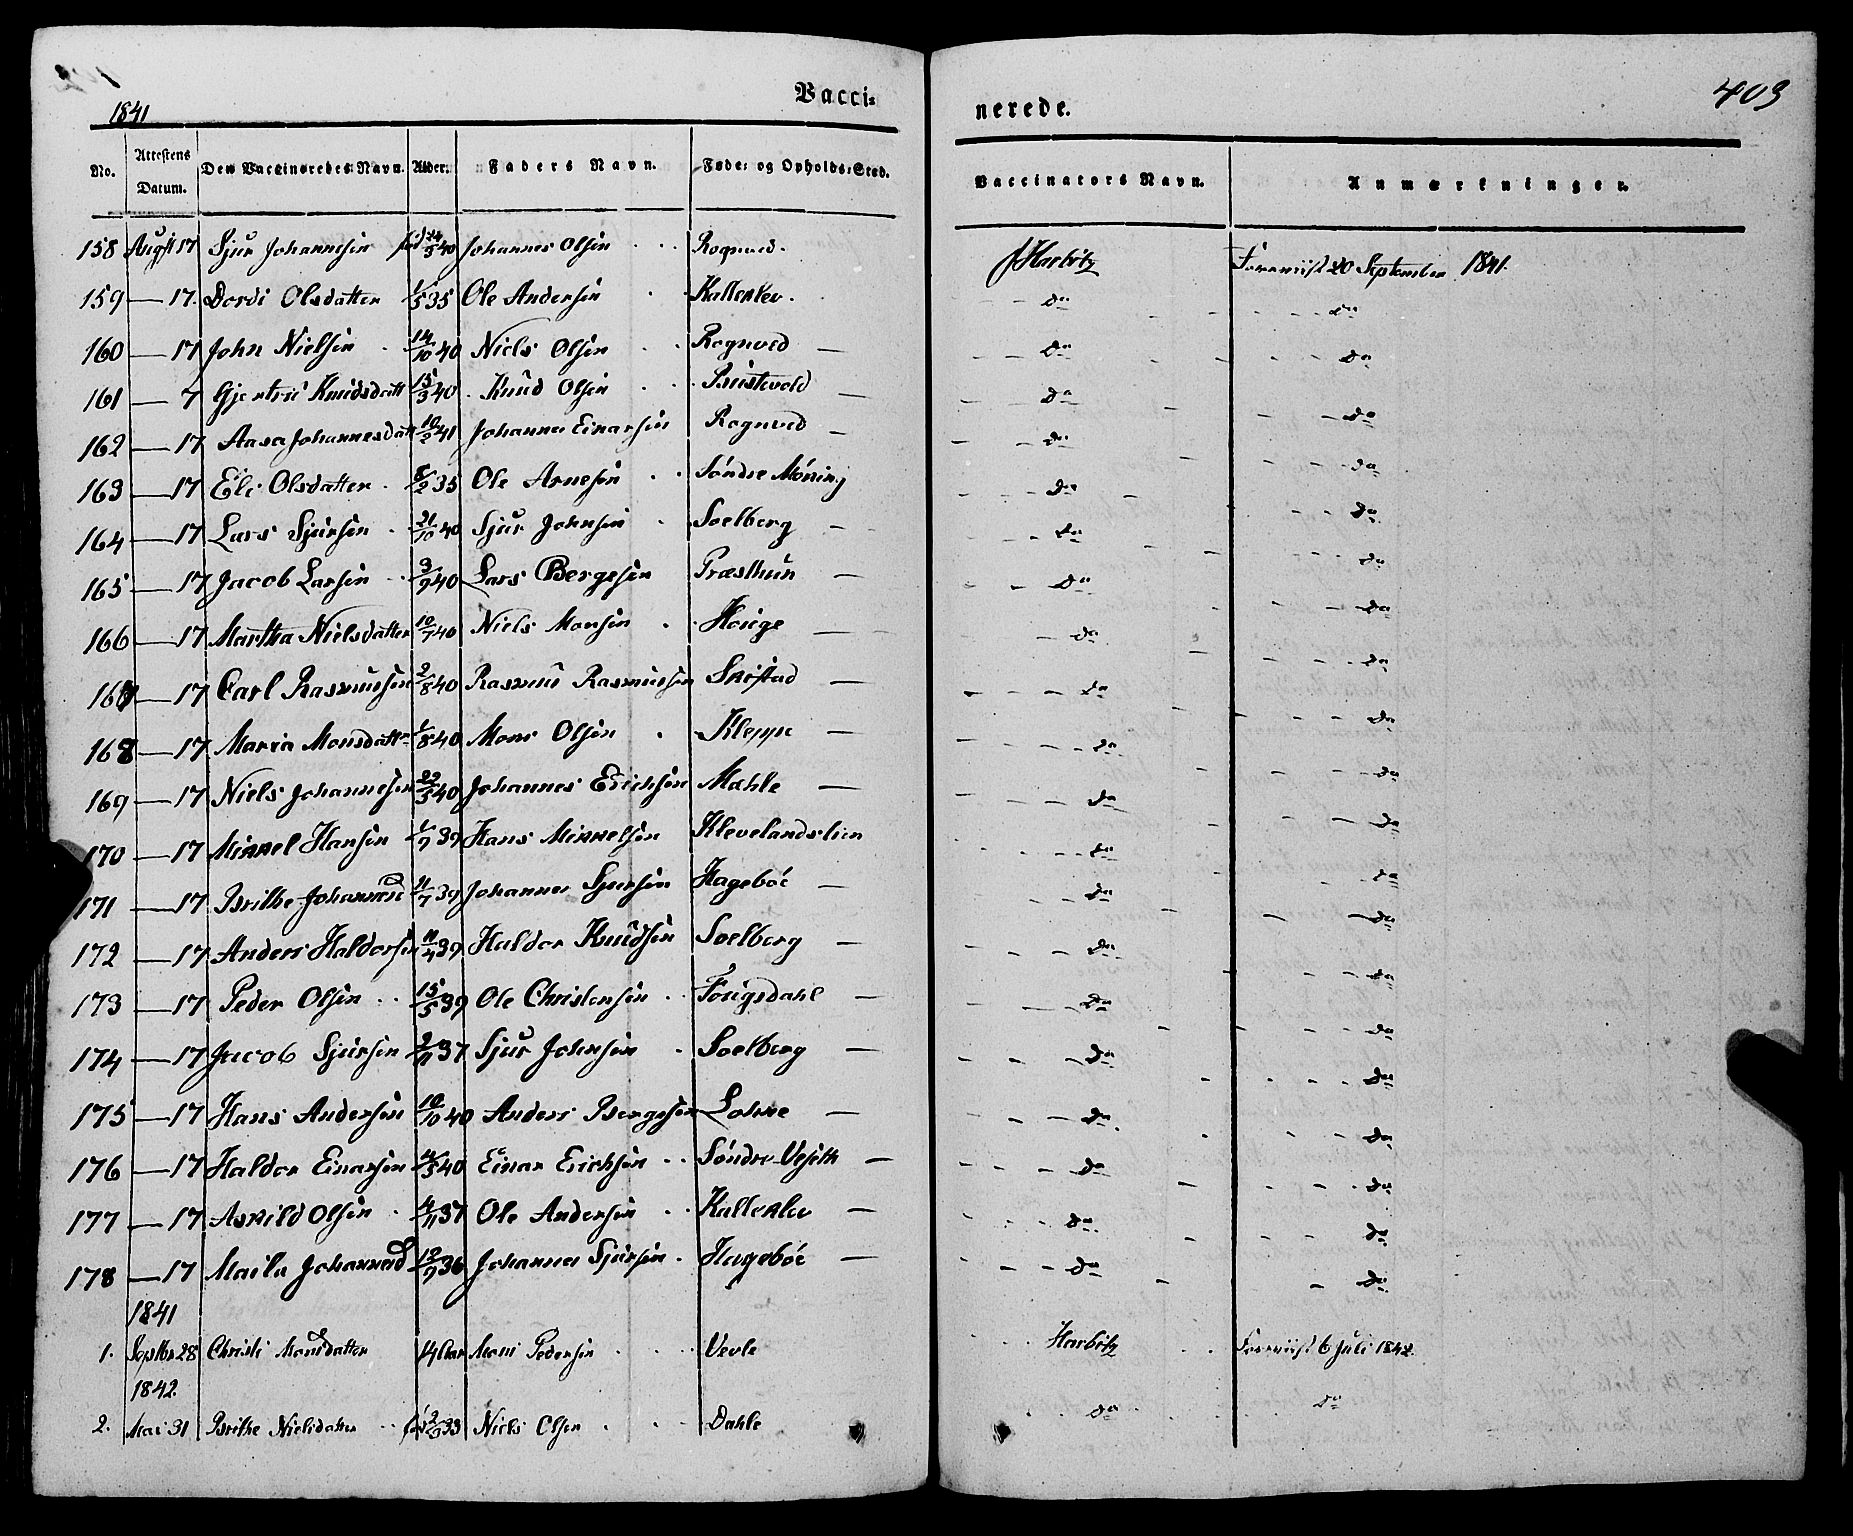 1841
Vacci- nerede. 403
No. Attestens Datum. Den Vaccineredes Navn. Alder. Faders Navn. Føde- og Opholds-Sted. Vaccinators Navn. Anmærkninger.
158 Augst 17 Sjur Johannesen fød 24/5 40 Johannes Olsen Rognved. J Harbitz Foreviist 20 September 1841.
159 — 17. Dordi Olsdatter 1/5 35 Ole Andersen Kalleklev. do do
160 — 17 John Nielsen 14/10 40 Niels Olsen Rognved — do do
161 — 7 Gjertrü Knudsdatt 15/3 40 Knud Olsen — do do
162 — 17 Aasa Johannesdatt 10/2 41 Johannes Einarsen Rognved — do do
163 — 17 Eli Olsdatter 5/2 35 Ole Arnesen Søndre Møning do do
164 — 17 Lars Sjursen 21/10 40 Sjur Johnsen Soelberg — do do
165 — 17 Jacob Larsen 3/9 40 Lars Bergesen Præsthun — do do
166 — 17 Martha Nielsdatter 10/7 40 Niels Monsen Houge — do do
167 — 17 Carl Rasmussen 2/8 40 Rasmus Rasmussen — do do
168 — 17 Maria Monsdatter 1/8 40 Mons Olsen Kleppe — do do
169 — 17 Niels Johannesen 22/5 40 Johannes Erichsen Mahle — do do
170 — 17 Mikkel Hansen 1/7 39 Hans Mikkelsen Klevelandslien do do
171 — 17 Brithe Johannesd 11/7 39 Johannes Sjursen Hageböe — do do
172 — 17 Anders Haldorsen 11/4 39 Haldor Knudsen Soelberg — do do
173 — 17 Peder Olsen 15/5 39 Ole Christensen Fougsdahl — do do
174 — 17 Jacob Sjursen 2/11 37 Sjur Johnsen Soelberg — do do
175 — 17 Hans Andersen 10/10 40 Anders Bergesen Lohne — do do
176 — 17 Haldor Einarsen 4/5 40 Einar Erichsen Søndre Vejeth — do do
177 — 17 Askild Olsen 4/11 37 Ole Andersen Kalleklev — do do
178 — 17 Maila Johannesd 12/9 36 Johannes Sjursen Hageböe — do do
1841
1. Septbr 28 Christi Monsdatter 14 Aar Mons Pedersen Vevle Harbitz Foreviist 6 Juli 1842.
1842.
2. Mai 31 Brithe Nielsdatter Niels Olsen Dahle do do